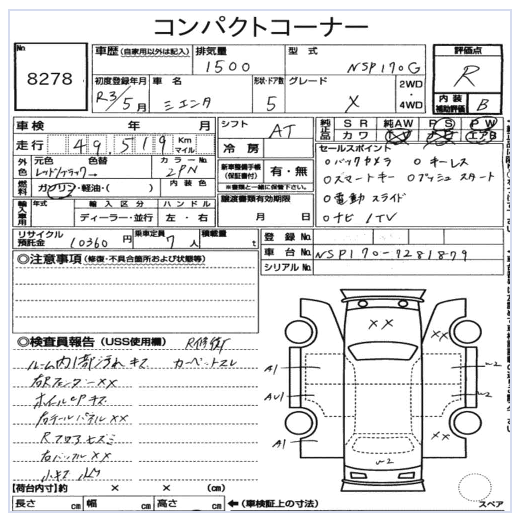 コンパクトコーナー
No 8278
車歴 (自家用以外は記入) 排気量 1500 型式 NSP170G 評価点 R
初度登録年月 R3/5月 車名 シエンタ 形状・ドア数 5 グレード X 2WD・4WD 内装補助評価 B
車検 年 月 シフト AT 純正品 SR 純AW PS PW カワ TV ナビ エアB
走行 49,519 Km マイル 冷房 セールスポイント
外色 元色 色替 カラーNo. 2PN 新車整備手帳(保証書付) 有・無 ※書類と一緒に保管下さい。 ○バックカメラ ○キーレス
○スマートキー ○プッシュスタート
燃料 ガソリン・軽油・( ) 内装色 ○電動スライド
輸入車用 年式 輸入区分 ハンドル 譲渡書類有効期限 ○ナビ/TV
ディーラー・並行 左・右 月 日
リサイクル預託金 10360 円 乗車定員 7人 積載量 t 登録No.
車台No. NSP170-7281879
◎注意事項 (修復・不具合箇所および状態等) シリアルNo.
◎検査員報告 (USS使用欄) R修復
XX
カーペットスレ
A1 W2
ホイールCPキズ AU1 W2
右テールパネルXX
Rフロア A1 XX
XX
W2
小キズ
【荷台内寸】約 × × (cm)
長さ cm 幅 cm 高さ cm ←(車検証上の寸法) スペア